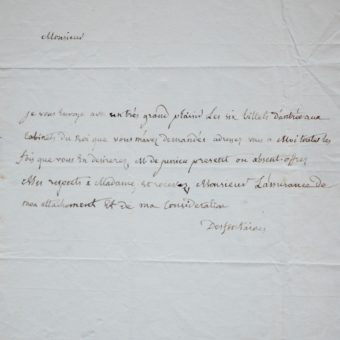 Monsieur
je vous envoye avec un très grand plaisir les six billets d'entrée aux
cabinets du Roi que vous m'avez demandés adressez vous a Moi toutes les
fois que vous En desirerez M de jussieu present ou absent. offrez
Mes respects à Madame, et recevez Monsieur L'assurance de
mon attachement Et de ma Consideration
Desfontaines